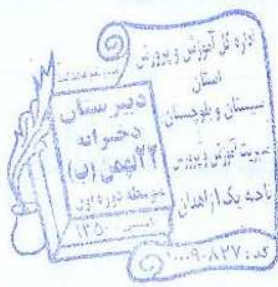 اداره کل آموزش و پرورش
استان
سیستان و بلوچستان
مدیریت آموزش و پرورش
ناحیه یک زاهدان
دبیرستان
دخترانه
۲۲ بهمن (ن)
متوسطه دوره اول
تاسیس ۱۳۵۰
کد: ۱۰۰۰۹۰۸۲۷